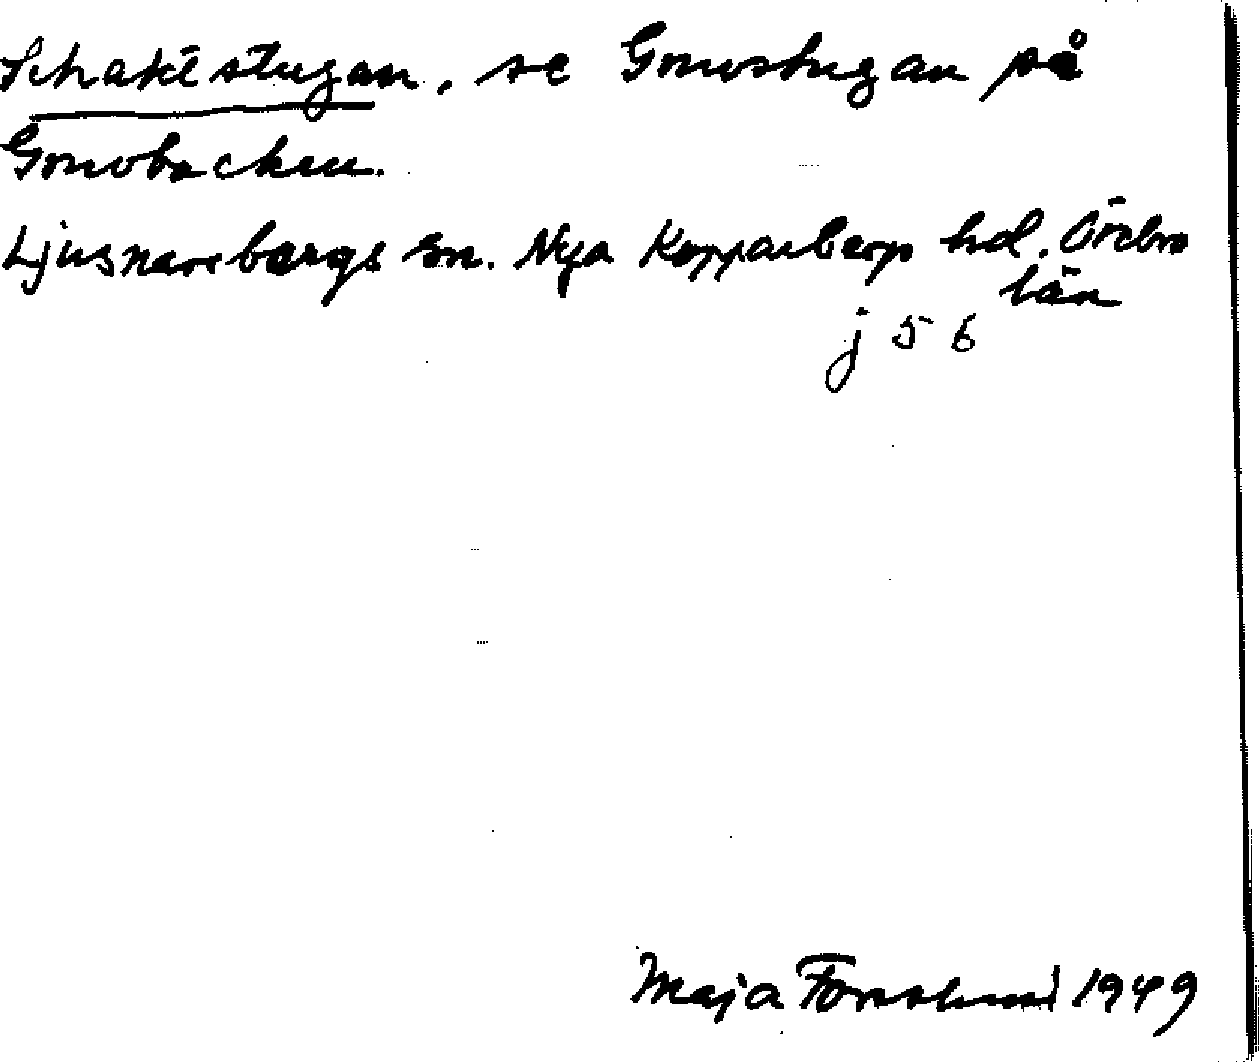 Schaktstugan, se Gruvstugan på
Gruvbacken.
Ljusnarsbergs sn. Nya Kopparbergs hd. Örebro
län
j 56
Maja Forsslund 1949